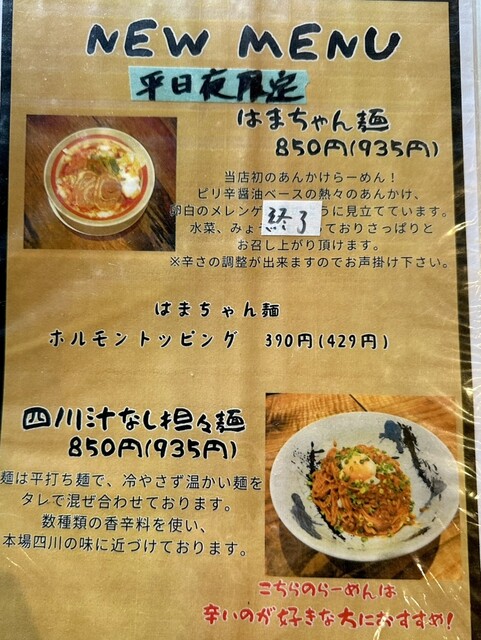 NEW MENU
平日夜限定
はまちゃん麺
850円(935円)
当店初のあんかけらーめん！
ピリ辛醤油ベースの熱々のあんかけ、
卵白のメレンゲ うに見立てています。
終了
水菜、みょ ておりさっぱりと
お召し上がり頂けます。
※辛さの調整が出来ますのでお声掛け下さい。
はまちゃん麺
ホルモントッピング 390円(429円)
四川汁なし担々麺
850円(935円)
麺は平打ち麺で、冷やさず温かい麺を
タレで混ぜ合わせております。
数種類の香辛料を使い、
本場四川の味に近づけております。
こちらのらーめんは
辛いのが好きな方におすすめ！